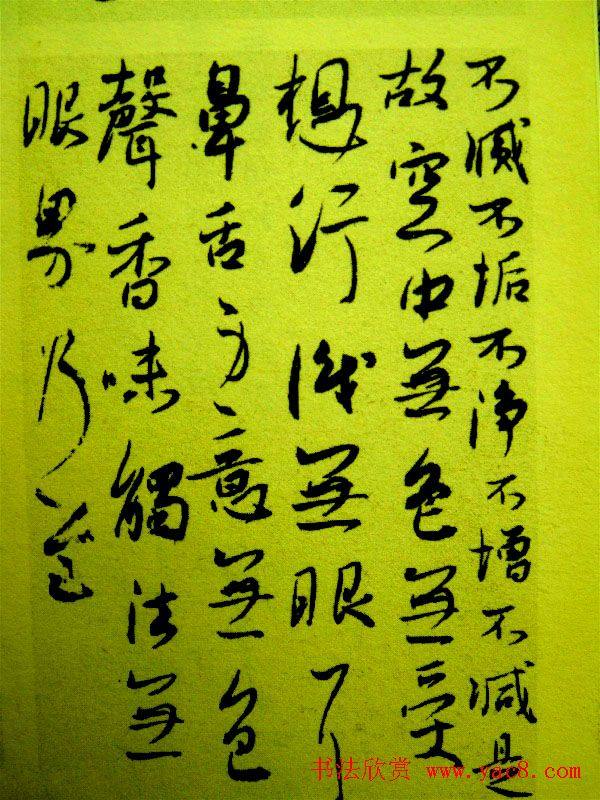 不滅不垢不净不增不减是
故空中無色無受
想行識無眼耳
鼻舌身意無色
聲香味觸法無
眼界乃至
书法欣赏 www.yac8.com